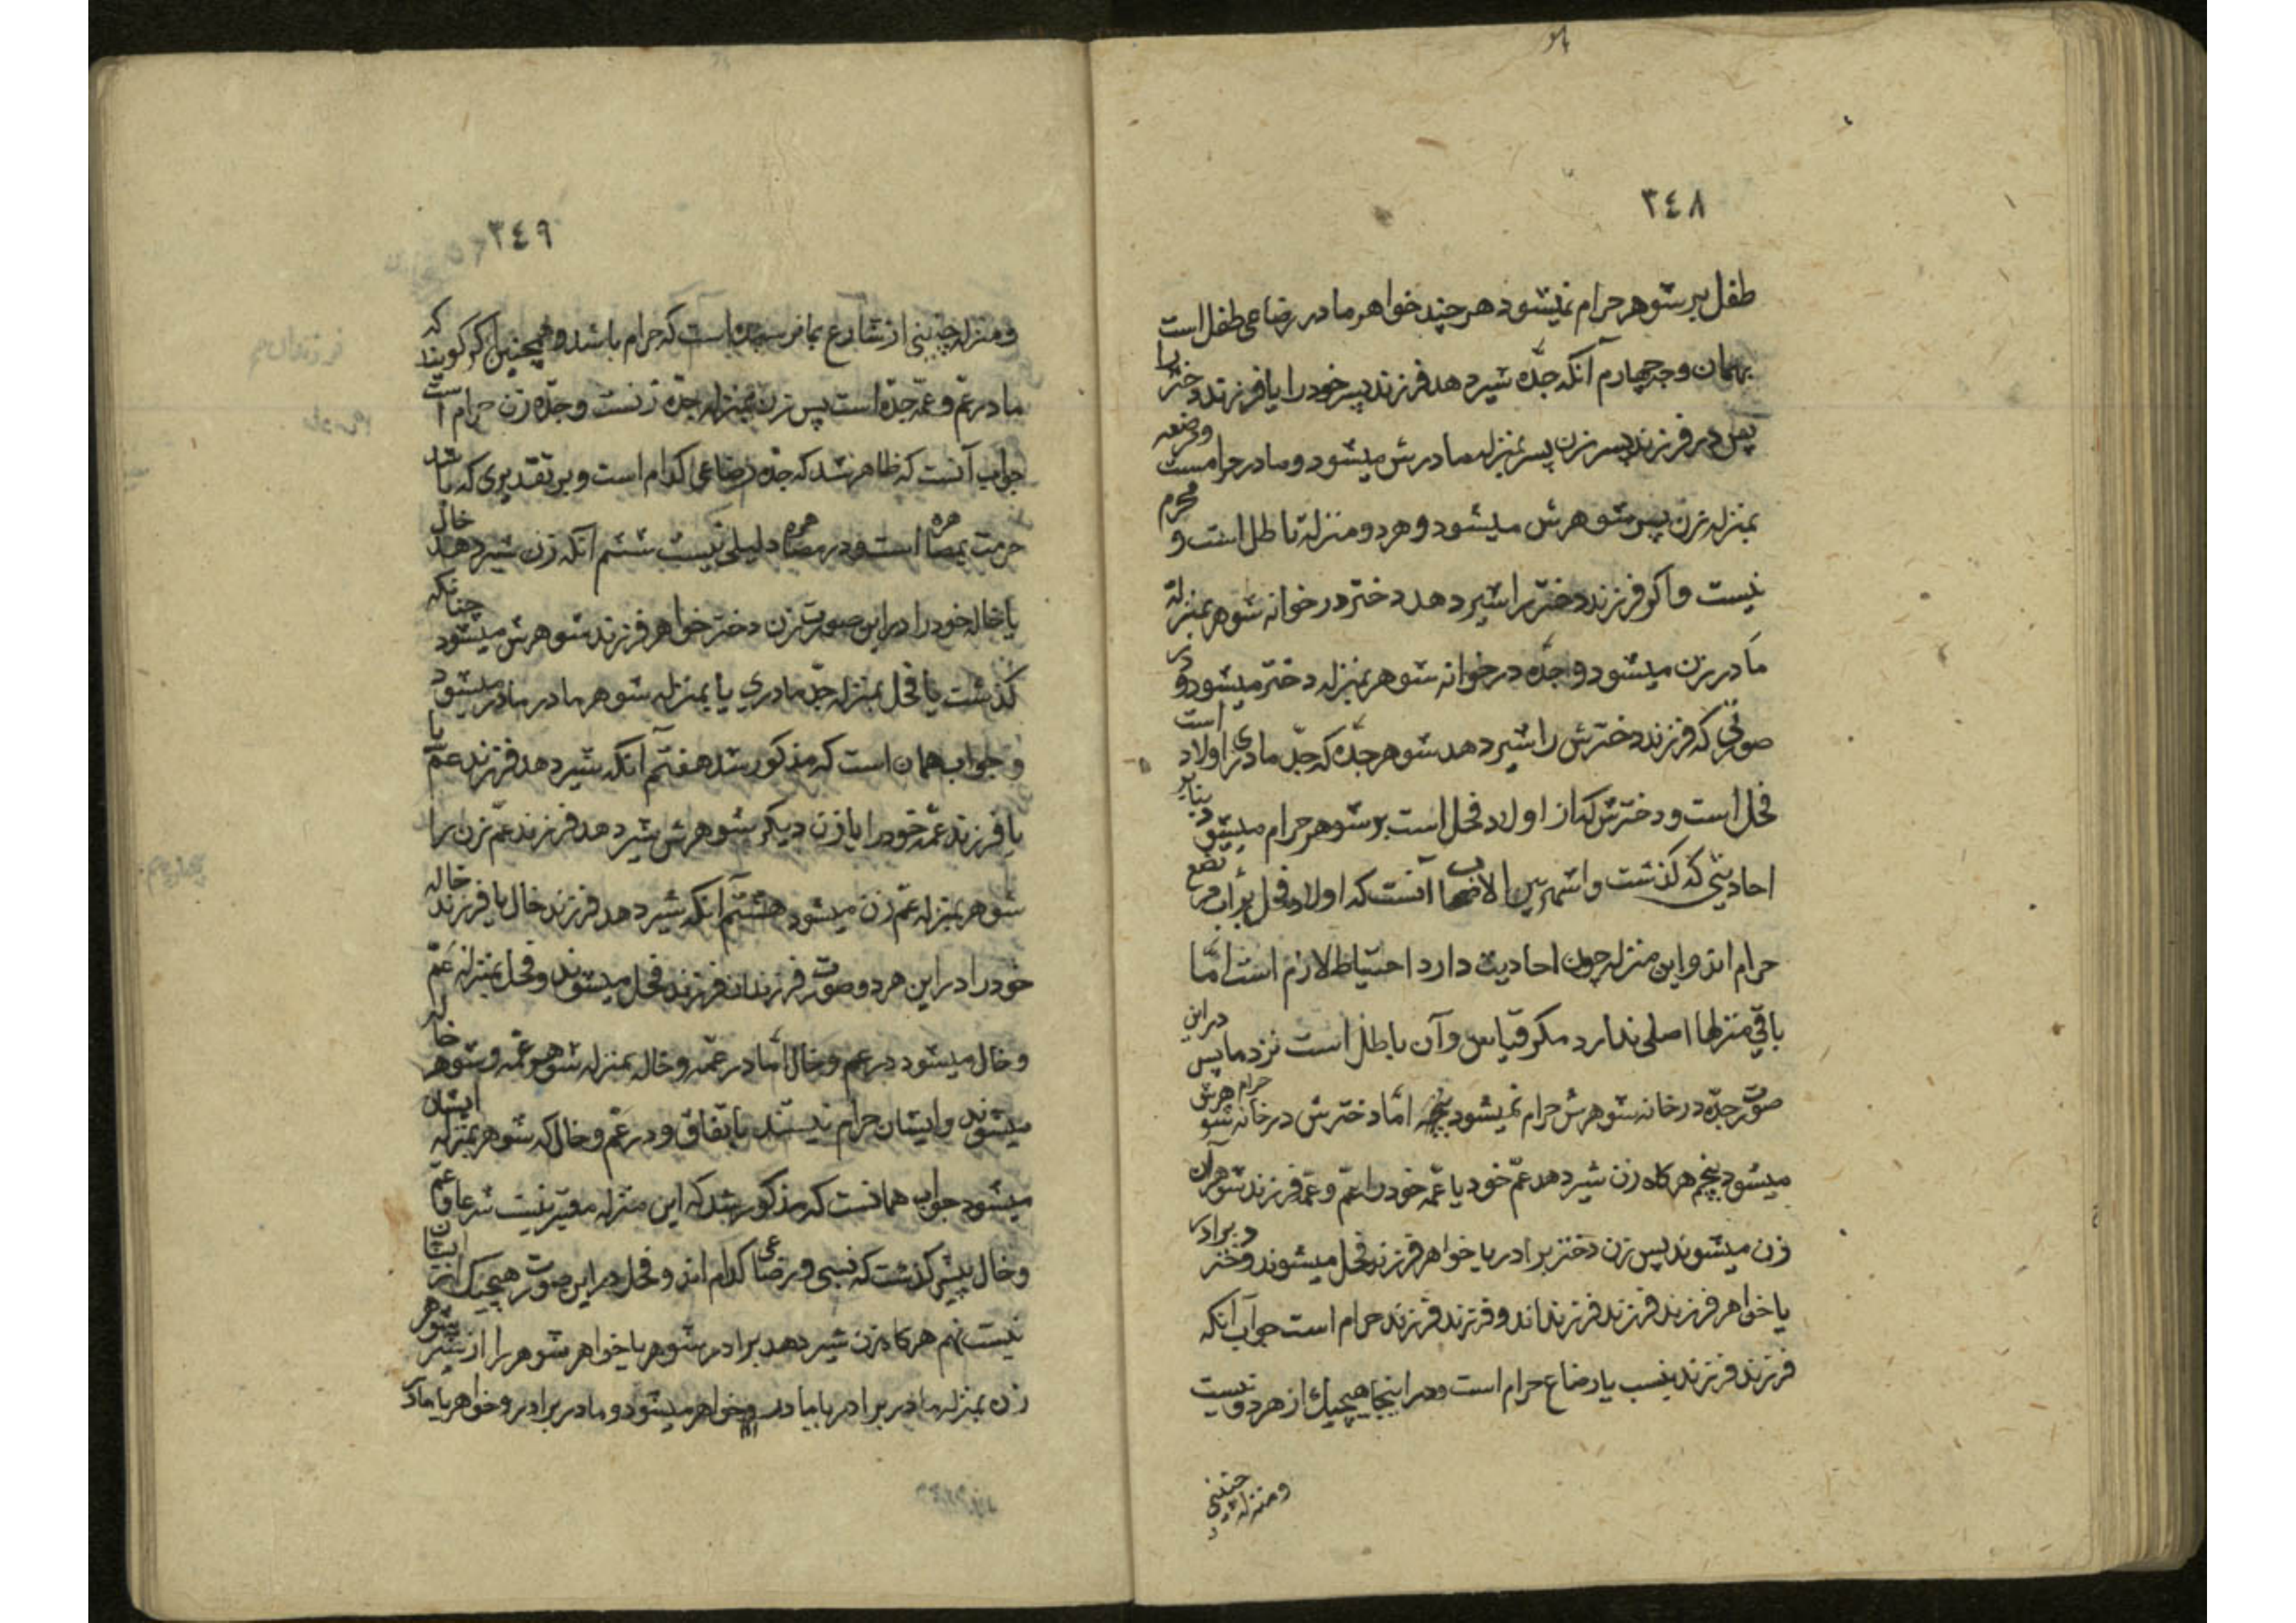 ٣٤٨
طفل بر شوهر حرام نمیشود هر چند خواهر مادر رضاعی طفل است
بهمان وجه چهارم آنکه جدّه شیر دهد فرزند پسر خود را یا فرزند دختر را
پس در فرزند پسر زن پسر بمنزله مادرش میشود و مادر حرامست و مرضعه
بمنزله زن پسر شوهرش میشود و هر دو منزله باطل است و محرم
نیست و اکر فرزند دختر را شیر دهد دختر در خوانه شوهر بمنزلهٔ
مادر زن میشود و جدّه در خوانه شوهر بمنزله دختر میشود و در
صورتی که فرزند دخترش را شیر دهد شوهر جدّه که جدّ مادری است اولاد
فحل است و دخترش که از اولاد فحل است بر شوهر حرام میشود بنابر
احادیثی که کذشت و اشهر بین الاصحاب آنست که اولاد فحل بر اب مرتضع
حرام اند و این منزله چون احادیث دارد احتیاط لازم است امّا
باقی منزلها اصلی ندارد مکر قیاس و آن باطل است نزد ما پس در این
صورت جدّه در خانه شوهرش حرام نمیشود امّا دخترش در خانه شوهرش حرام
میشود پنجم هرکاه زن شیر دهد عمّ خود یا عمّه خود را عمّ و عمّه فرزند شوهر آن
زن میشوند پس زن دختر برادر یا خواهر فرزند فحل میشوند و دختر برادر
یا خواهر فرزند فرزند فرزنداند و فرزند فرزند حرام است جواب آنکه
فرزند فرزند بنسب یا رضاع حرام است و در اینجا هیچیك از هر دو نیست
و منزله چنینی
٣٤٩
و منزله چنینی از شارع بما نرسیده است که حرام باشد و همچنین اکر کویند که
مادر عمّ و عمّه جدّه است پس زن بمنزله جدّه زنست و جدّه زن حرام است
جواب آنست که ظاهر شد که جدّه رضاعی کدام است و بر تقدیری که باشد
حرمت بمصاهره است و در مصاهره دلیلی نیست ششم آنکه زن شیر دهد خال
یا خاله خود را در این صورت زن دختر خواهر فرزند شوهرش میشود چنانکه
کذشت یا فحل بمنزله جدّ مادری یا بمنزله شوهر مادر مادر میشود
و جواب همان است که مذکور شد هفتم آنکه شیر دهد فرزند عمّ یا
یا فرزند عمّه خود را یا زن دیکر شوهرش شیر دهد فرزند عمّ زن را
شوهر بمنزله عمّ زن میشود هشتم آنکه شیر دهد فرزند خال یا فرزند خاله
خود را در این هر دو صورت فرزندان فرزند فحل میشوند و فحل بمنزله عمّ
و خال میشود در عم و خال امّا در عمّه و خاله بمنزله شوهر عمّه و شوهر خاله
میشوند و ایشان حرام نیستند باتفاق و در عمّ و خال که شوهر بمنزله ایشان
میشود جواب همانست که مذکور شد که این منزله معتبر نیست شرعا و عمّ
و خال پیش کذشت که نسبی و رضاعی کدام اند و فحل در این صورت هیچیك از ایشان
نیست نهم هرکاه زن شیر دهد برادر شوهر یا خواهر شوهر را از شیر شوهر
زن بمنزله مادر برادر یا مادر خواهر میشود و مادر برادر و خواهر یا مادر